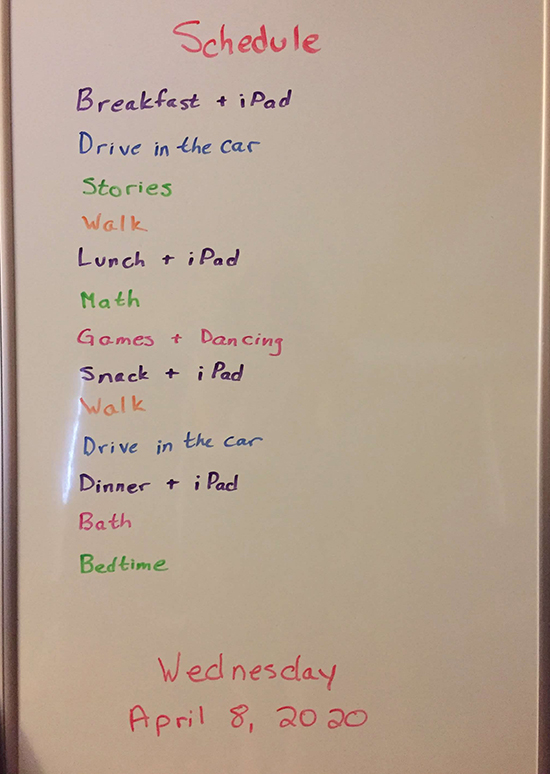 Schedule
Breakfast + iPad
Drive in the car
Stories
Walk
Lunch + iPad
Math
Games + Dancing
Snack + iPad
Walk
Drive in the car
Dinner + iPad
Bath
Bedtime
Wednesday
April 8, 2020